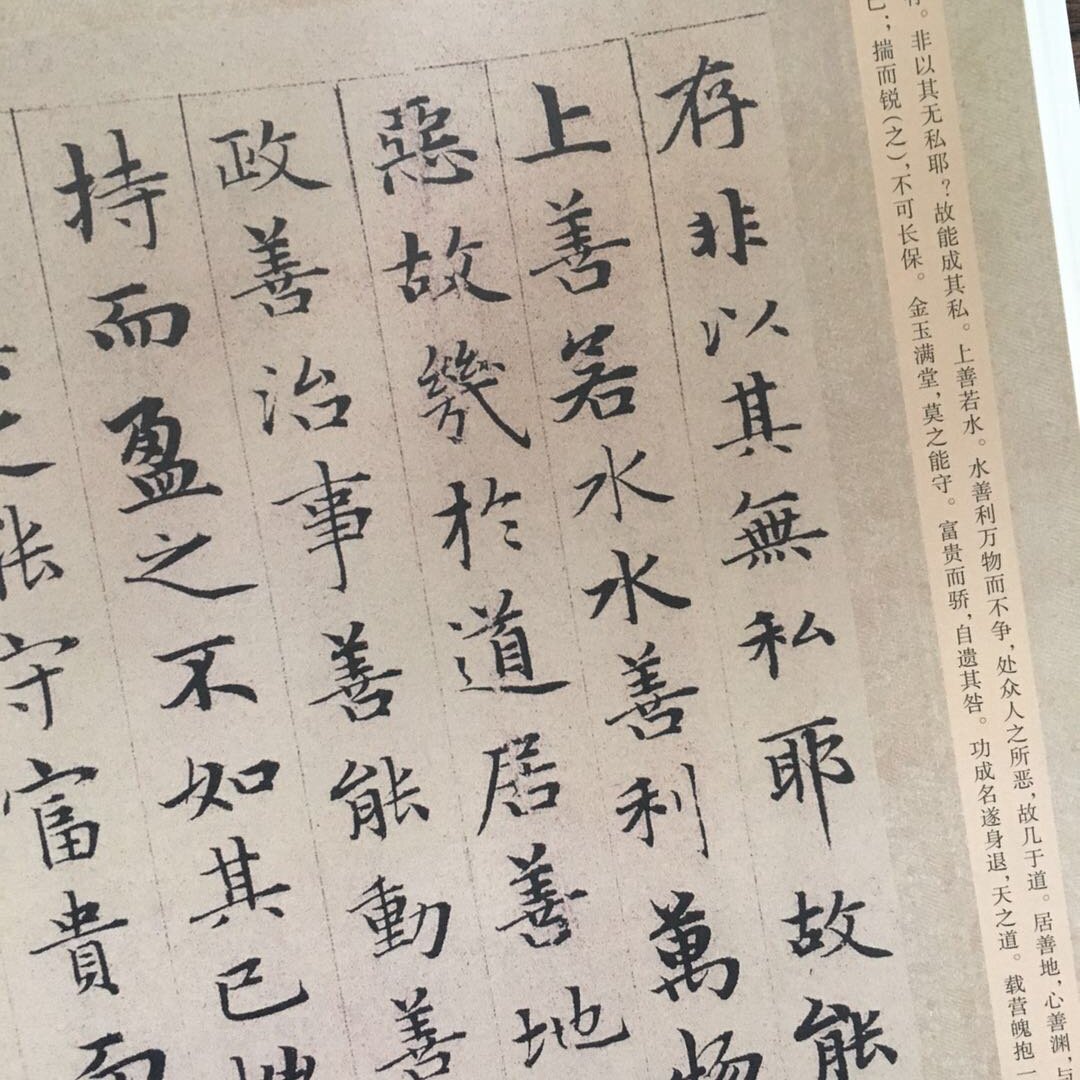 非以其无私耶？故能成其私。上善若水。水善利万物而不争，处众人之所恶，故几于道。居善地，心善渊，与
已；揣而锐(之)，不可长保。金玉满堂，莫之能守。富贵而骄，自遗其咎。功成名遂身退，天之道。载营魄抱一
存非以其無私耶故能
上善若水水善利萬物
惡故幾於道居善地
政善治事善能動善
持而盈之不如其已
之能守富貴而